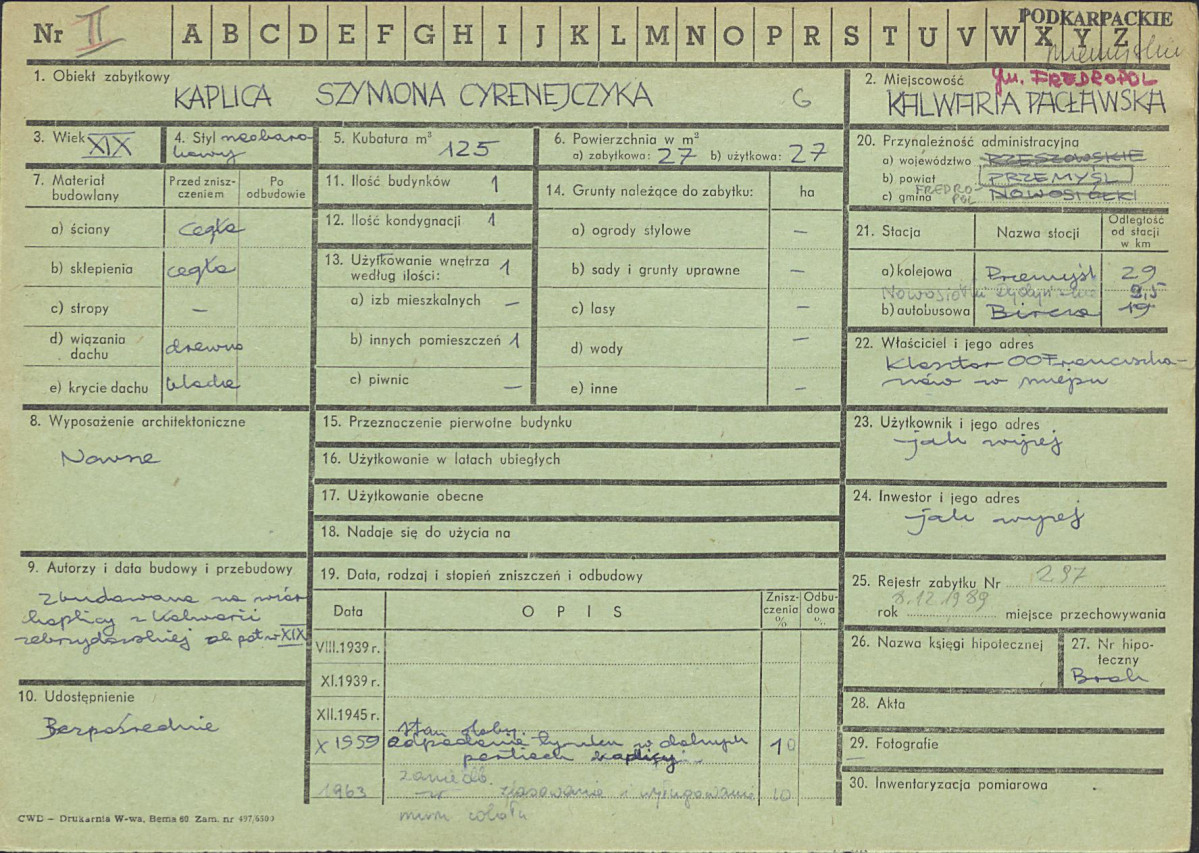 PODKARPACKIE
Nr II A B C D E F G H I J K L M N O P R S T U V W X Y Z
gm. FREDROPOL
1. Obiekt zabytkowy
KAPLICA SZYMONA CYRENEJCZYKA G
2. Miejscowość
KALWARIA PACŁAWSKA
3. Wiek XIX
4. Styl neobaro
kowy
5. Kubatura m³ 125
6. Powierzchnia w m²
a) zabytkowa: 27 b) użytkowa: 27
7. Materiał budowlany
Przed zniszczeniem
Po odbudowie
a) ściany cegła
b) sklepienia cegła
c) stropy –
d) wiązania dachu drewno
e) krycie dachu blacha
8. Wyposażenie architektoniczne
9. Autorzy i data budowy i przebudowy
Zbudowana na wzór
kaplicy z Kalwarii
zebrzydowskiej ok poł. w XIX
10. Udostępnienie
Bezpośrednie
11. Ilość budynków 1
12. Ilość kondygnacji 1
13. Użytkowanie wnętrza według ilości: 1
a) izb mieszkalnych –
b) innych pomieszczeń 1
c) piwnic –
14. Grunty należące do zabytku: ha
a) ogrody stylowe –
b) sady i grunty uprawne –
c) lasy –
d) wody –
e) inne –
15. Przeznaczenie pierwotne budynku
16. Użytkowanie w latach ubiegłych
17. Użytkowanie obecne
18. Nadaje się do użycia na
19. Data, rodzaj i stopień zniszczeń i odbudowy
Data OPIS Zniszczenia % Odbudowa %
VIII.1939 r.
XI.1939 r.
XII.1945 r.
stan dobry.
X 1959 odpadanie tynku w dolnych 10
partiach kaplicy
1963 10
20. Przynależność administracyjna
a) województwo RZESZOWSKIE
b) powiat PRZEMYŚL
c) gmina FREDROPOL NOWOSIÓŁKI
21. Stacja
Nazwa stacji
Odległość od stacji w km
a) kolejowa Przemyśl 29
Nowosiółki Dydyńskie 9,5
b) autobusowa Bircza 19
22. Właściciel i jego adres
Klasztor OO Franciszka-
nów w miejscu
23. Użytkownik i jego adres
jak wyżej
24. Inwestor i jego adres
jak wyżej
25. Rejestr zabytku Nr 297
rok 8.12.1989 miejsce przechowywania
26. Nazwa księgi hipotecznej
27. Nr hipoteczny
Brak
28. Akta
29. Fotografie
–
30. Inwentaryzacja pomiarowa
CWD – Drukarnia W-wa, Bema 60 Zam. nr 497/6500